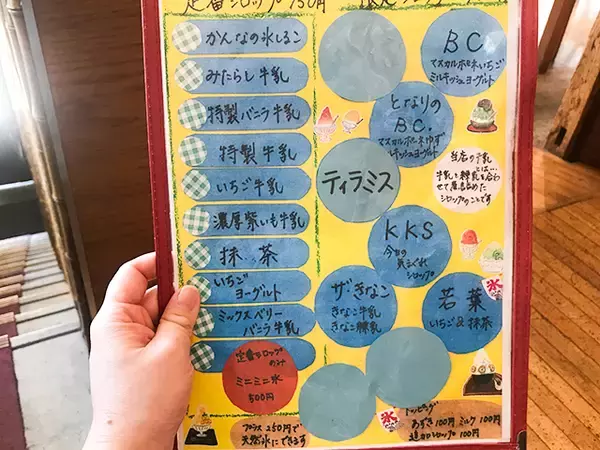 定番シロップ 750円
かんなの氷しるこ
みたらし牛乳
特製バニラ牛乳
特製牛乳
いちご牛乳
濃厚紫いも牛乳
抹茶
いちご
ヨーグルト
ミックスベリー
バニラ牛乳
定番シロップ
のみ
ミニミニ氷
500円
プラス250円で
天然氷にできます
BC
マスカルポーネいちご
ミルキッシュヨーグルト
となりの
BC.
マスカルポーネゆず
ルキッシュヨーグルト
当店の牛乳
とは…
牛乳と練乳を合わ
せて煮詰めた
シロップのことです
ティラミス
KKS
今日の
気まぐれ
シロップ
ザきなこ
きなこ牛乳
きなこ練乳
若葉
いちご&抹茶
氷
氷
トッピング
あずき100円 ミルク100円
追加シロップ100円